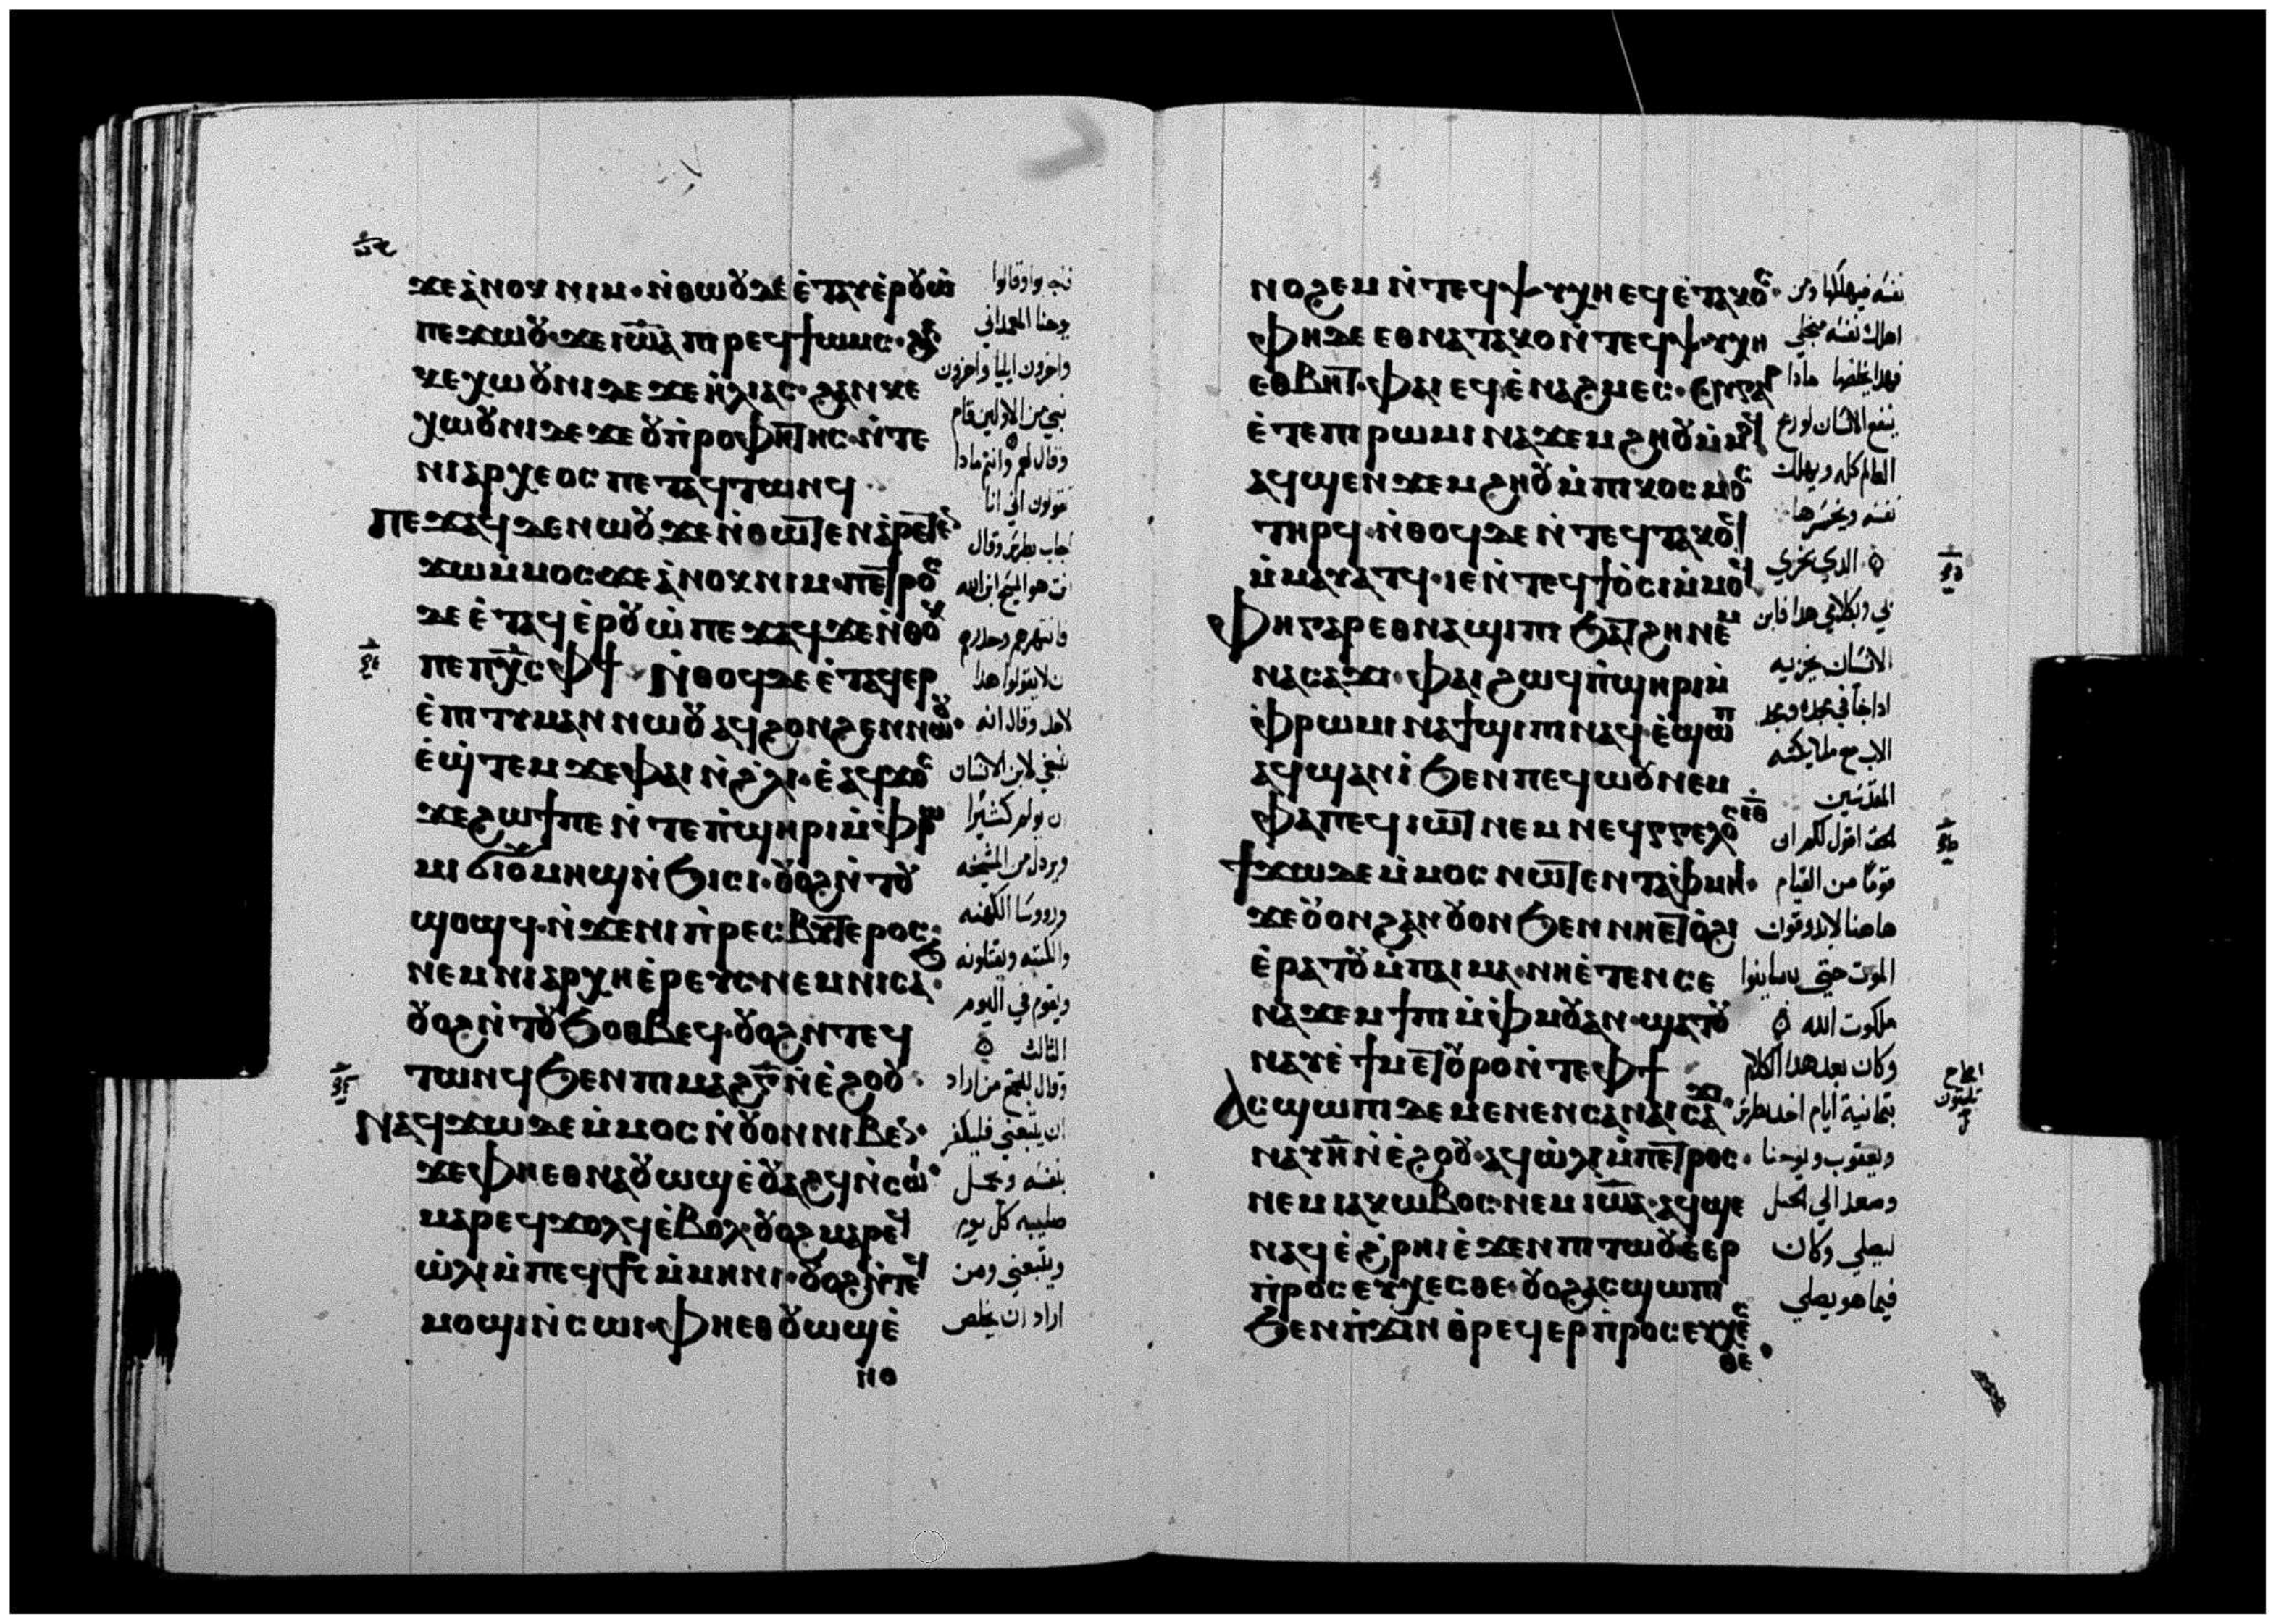 ϫⲉⲁ̀ⲛⲟⲕ ⲛⲓⲙ· ⲛ̀ⲑⲱⲟⲩ ⲇⲉ ⲉ̀ⲧⲁⲩⲉ̀ⲣⲟⲩⲱ̀
ⲡⲉϫⲱⲟⲩ· ϫⲉ ⲓⲱⲁ ⲡⲓⲣⲉϥϯⲱⲙⲥ·
ⲕⲉⲭⲱⲟⲩⲛⲓ ⲇⲉ ϫⲉ ⲏ̀ⲗⲓⲁⲥ· ϩⲁⲛⲕⲉ
ⲭⲱⲟⲩⲛⲓ ⲇⲉ ϫⲉ ⲟⲩⲡ̀ⲣⲟⲫⲏⲧⲏⲥ· ⲛ̀ⲧⲉ
ⲛⲓⲁⲣⲭⲉⲟⲥ ⲡⲉⲧⲁϥⲧⲱⲛϥ··
ⲡⲉϫⲁϥ ⲇⲉ ⲛⲱⲟⲩ ϫⲉ ⲛ̀ⲑⲱⲧⲉⲛ ⲁ̀ⲣⲉⲧⲉ
ϫⲱ ⲙ̀ⲙⲟⲥ ϫⲉ ⲁ̀ⲛⲟⲕ ⲛⲓⲙ· ⲡⲉⲧⲣⲟⲥ
ⲇⲉ ⲉ̀ⲧⲁϥⲉ̀ⲣⲟⲩⲱ̀ ⲡⲉϫⲁϥ ϫⲉ ⲛ̀ⲑⲟⲕ
ⲡⲉ ⲡⲭ̅ⲥ ⲫϯ· ⲛ̀ⲑⲟϥ ⲇⲉ ⲉ̀ⲧⲁϥⲉⲣ
ⲉ̀ⲡⲓⲧⲓⲙⲁⲛ ⲛⲱⲟⲩ ⲁϥϩⲟⲛϩⲉⲛ ⲛⲱⲟⲩ·
ⲉ̀ϣ̀ⲧⲉⲙϫⲉ ⲫⲁⲓ ⲛ̀ϩ̀ⲗⲓ· ⲉ̀ⲁϥϫⲟⲥ
ϫⲉ ϩⲱϯ ⲡⲉ ⲛ̀ⲧⲉ ⲡ̀ϣⲏⲣⲓ ⲙ̀ⲫⲣⲱ
ⲙⲓ ϭⲓ ⲟⲩⲙⲏϣ ⲛ̀ϧⲓⲥⲓ· ⲟⲩⲟϩ ⲛ̀ⲧⲟⲩ
ϣⲟϣϥ· ⲛ̀ϫⲉ ⲛⲓⲡ̀ⲣⲉⲥⲃⲩⲧⲉⲣⲟⲥ·
ⲛⲉⲙ ⲛⲓⲁⲣⲭⲏⲉ̀ⲣⲉⲩⲥ· ⲛⲉⲙ ⲛⲓⲥⲁϧ·
ⲟⲩⲟϩ ⲛ̀ⲧⲟⲩϧⲟⲑⲃⲉϥ· ⲟⲩⲟϩ ⲛ̀ⲧⲉϥ
ⲧⲱⲛϥ ϧⲉⲛ ⲡⲓⲙⲁϩⲅ̅ ⲛ̀ⲉ̀ϩⲟⲟⲩ·
ⲛⲁϥϫⲱ ⲇⲉ ⲙ̀ⲙⲟⲥ ⲛ̀ⲟⲩⲟⲛ ⲛⲓⲃⲉⲛ·
ϫⲉ ⲫⲏⲉⲑⲛⲁⲟⲩⲱϣ ⲉ̀ⲟⲩⲁϩϥ ⲛ̀ⲥⲱⲓ
ⲙⲁⲣⲉϥϫⲟⲗϥ ⲉ̀ⲃⲟⲗ ⲟⲩⲟϩ ⲙⲁⲣⲉϥ
ⲱ̀ⲗⲓ ⲙ̀ⲡⲉϥⲥ̅ϯⲥ ⲙ̀ⲙⲏⲛⲓ· ⲟⲩⲟϩ ⲛ̀ⲧⲉϥ
ⲙⲟϣⲓ ⲛ̀ⲥⲱⲓ· ⲫⲏⲉⲑⲟⲩⲱϣ ⲉ̀
ⲛⲟ
واخرون ايليا واخرون
نبي من الاولين قام
وقال لهم وانتم ماذا
تقولون اني انا
اجاب بطرس وقال
انت هو المسيح ابن الله
فانتهرهم وحذرهم
ان لا يقولوا هذا
لاحد وقال انه
ينبغي لابن الانسان
ان يولم كتيرا
ويردل من المشيخه
وروسا الكهنه
والكتبه ويقتلونه
ويقوم في اليوم
التالت
وقال للجمع من اراد
ان يتبعني فليكفر
بنفسه ويحمل
صليبه كل يوم
ويتبعني ومن
اراد ان يخلص
ⲛⲟϩⲉⲙ ⲛ̀ⲧⲉϥⲯⲩⲭⲏ ⲉϥⲉ̀ⲧⲁⲕⲟⲥ·
ⲫⲏ ⲇⲉ ⲉⲑⲛⲁⲧⲁⲕⲟ ⲛ̀ⲧⲉϥⲯⲩⲭⲏ
ⲉⲑⲃⲏⲧ· ⲫⲁⲓ ⲉϥⲉ̀ⲛⲁϩⲙⲉⲥ·
ⲉ̀ⲧⲉ ⲡⲓⲣⲱⲙⲓ ⲛⲁϫⲉⲙϩⲏⲟⲩ ⲙ̀ⲙⲟϥ
ⲁϥϣⲉⲛϫⲉⲙϩⲏⲟⲩ ⲙ̀ⲡⲓⲕⲟⲥⲙⲟⲥ
ⲧⲏⲣϥ· ⲛ̀ⲑⲟϥ ⲇⲉ ⲛ̀ⲧⲉϥⲧⲁⲕⲟϥ
ⲙ̀ⲙⲁⲩⲁⲧϥ· ⲓⲉ ⲛ̀ⲧⲉϥϯⲟ̀ⲥⲓ ⲙ̀ⲙⲟϥ·
ⲫⲏ ⲅⲁⲣ ⲉⲑⲛⲁϣⲓⲡⲓ ϧⲁⲧϩⲏ ⲛⲉⲙ
ⲛⲁⲥⲁϫⲓ· ⲫⲁⲓ ϩⲱϥ ⲡ̀ϣⲏⲣⲓ ⲙ̀
ⲫⲣⲱⲙⲓ ⲛⲁϯϣⲓⲡⲓ ⲛⲁϥ· ⲉ̀ϣⲱⲡ
ⲁϥϣⲁⲛⲓ̀ ϧⲉⲛ ⲡⲉϥⲱⲟⲩ ⲛⲉⲙ
ⲫⲁ ⲡⲉϥⲓⲱⲧ ⲛⲉⲙ ⲛⲉϥⲁⲅⲅⲉⲗⲟⲥ ⲉⲑ
ϯϫⲱ ⲇⲉ ⲙ̀ⲙⲟⲥ ⲛⲱⲧⲉⲛ ⲧⲁⲫⲙⲏⲓ·
ϫⲉ ⲟⲩⲟⲛ ϩⲁⲛⲟⲩⲟⲛ ϧⲉⲛ ⲛⲏⲉⲧⲟ̀ϩⲓ
ⲉ̀ⲣⲁⲧⲟⲩ ⲙ̀ⲡⲁⲓⲙⲁ· ⲛⲏⲉ̀ⲧⲉⲛⲥⲉ
ⲛⲁϫⲉⲙϯⲡⲓ ⲙ̀ⲫⲙⲟⲩ ⲁⲛ· ϣⲁⲧⲟⲩ
ⲛⲁⲩ ⲉ̀ϯⲙⲉⲧⲟⲩⲣⲟ ⲛ̀ⲧⲉ ⲫϯ
ⲁⲥϣⲱⲡⲓ ⲇⲉ ⲙⲉⲛⲉⲛⲥⲁ ⲛⲁⲓⲥⲁϫⲓ·
ⲛⲁⲩ ⲏ̅ ⲛ̀ⲉ̀ϩⲟⲟⲩ· ⲁϥⲱ̀ⲗⲓ ⲙ̀ⲡⲉⲧⲣⲟⲥ·
ⲛⲉⲙ ⲓⲁⲕⲱⲃⲟⲥ· ⲛⲉⲙ ⲓⲱⲁ· ⲁϥϣⲉ
ⲛⲁϥ ⲉ̀ϩ̀ⲣⲏⲓ ⲉ̀ϫⲉⲛ ⲡⲓⲧⲱⲟⲩ ⲉ̀ⲉⲣ
ⲡ̀ⲣⲟⲥⲉⲩⲭⲉⲥⲑⲉ· ⲟⲩⲟϩ ⲁⲥϣⲱⲡⲓ
ϧⲉⲛ ⲡ̀ϫⲓⲛⲑ̀ⲣⲉϥⲉⲣⲡ̀ⲣⲟⲥⲉⲩⲭⲉⲥ
ⲑⲉ·
نفسه فيهلكها ومن
اهلك نفسه من اجلي
فهذا يخلصها ماذا
ينفع الانسان لو ربح
العالم كله ويهلك
نفسه ويخسرها
الذي يخزي
بي وبكلامي هذا فابن
الانسان يخزيه
اذا جا في مجده ومجد
الاب مع ملايكته
المقدسين
الحق اقول لكم ان
قوما من القيام
هاهنا لا يذوقون
الموت حتى يعاينوا
ملكوت الله
وكان بعد هذا الكلام
بثمانية ايام اخذ بطرس
ويعقوب ويوحنا
وصعد الي الجبل
ليصلي وكان
فيما هو يصلي